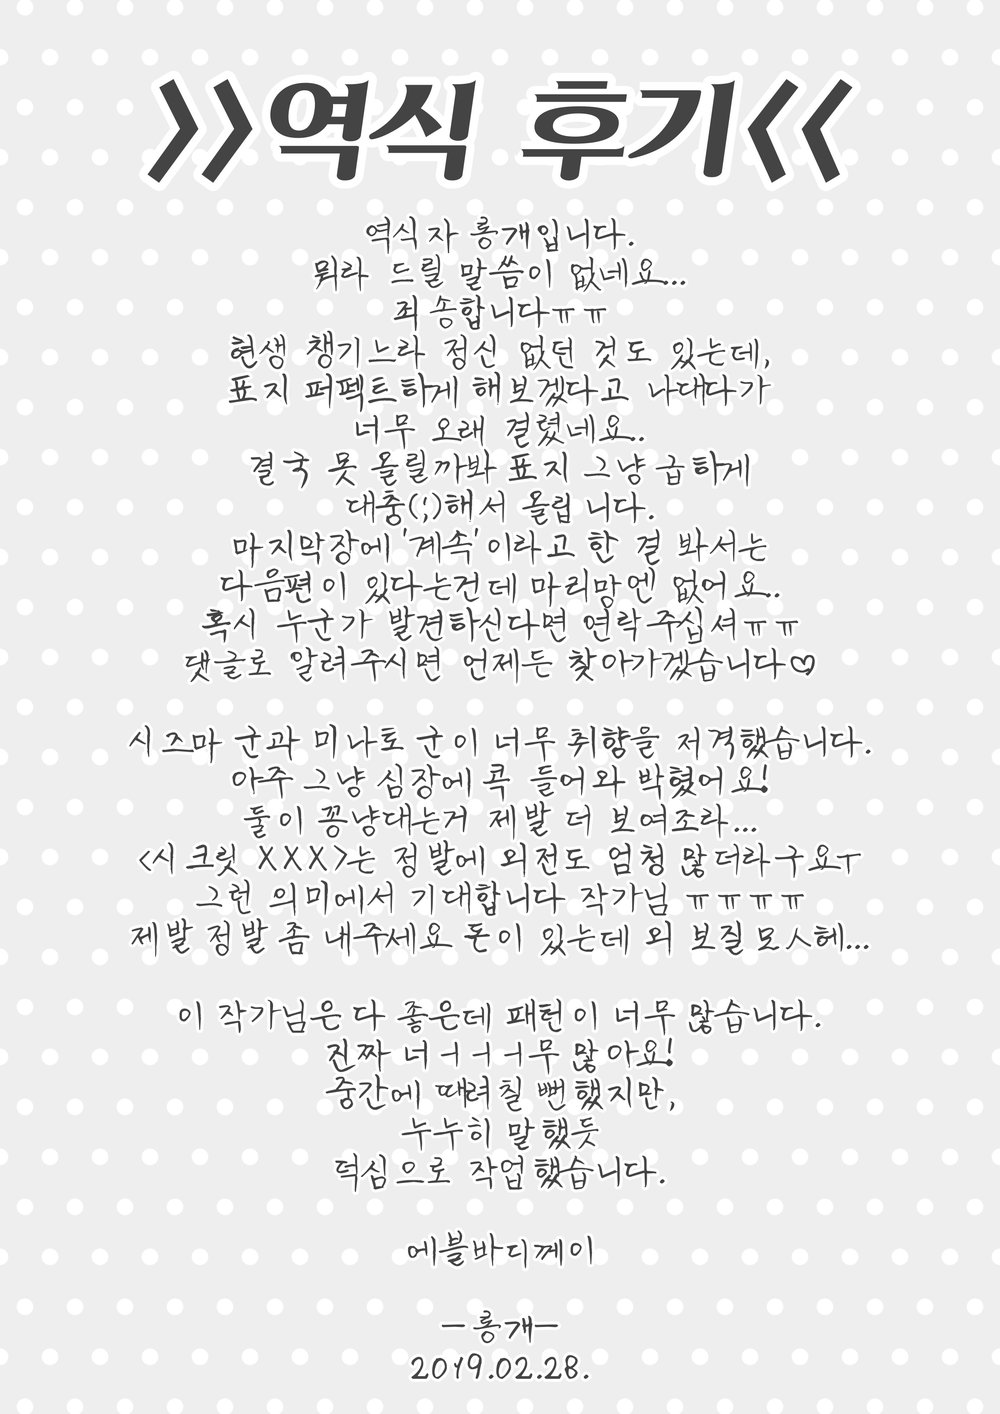 >>역식 후기<<
역식자 룡개입니다.
뭐라 드릴 말씀이 없네요...
죄송합니다ㅠㅠ
현생 챙기느라 정신 없던 것도 있는데,
표지 퍼펙트하게 해보겠다고 나대다가
너무 오래 걸렸네요..
결국 못 올릴까봐 표지 그냥 급하게
대충(;;)해서 올립니다.
마지막장에 '계속'이라고 한 걸 봐서는
다음편이 있다는건데 마리망엔 없어요..
혹시 누군가 발견하신다면 연락주십셔ㅠㅠ
댓글로 알려주시면 언제든 찾아가겠습니다♡
시즈마 군과 미나토 군이 너무 취향을 저격했습니다.
아주 그냥 심장에 콕 들어와 박혔어요!
둘이 꽁냥대는거 제발 더 보여조라...
<시크릿 XXX>는 정발에 외전도 엄청 많더라구요ㅜ
그런 의미에서 기대합니다 작가님 ㅠㅠㅠㅠ
제발 정발 좀 내주세요 돈이 있는데 외 보질모ㅅ헤...
이 작가님은 다 좋은데 패턴이 너무 많습니다.
진짜 너ㅓㅓㅓ무 많아요!
중간에 때려칠 뻔했지만,
누누히 말했듯
덕심으로 작업했습니다.
에블바디께이
-룡개-
2019.02.28.